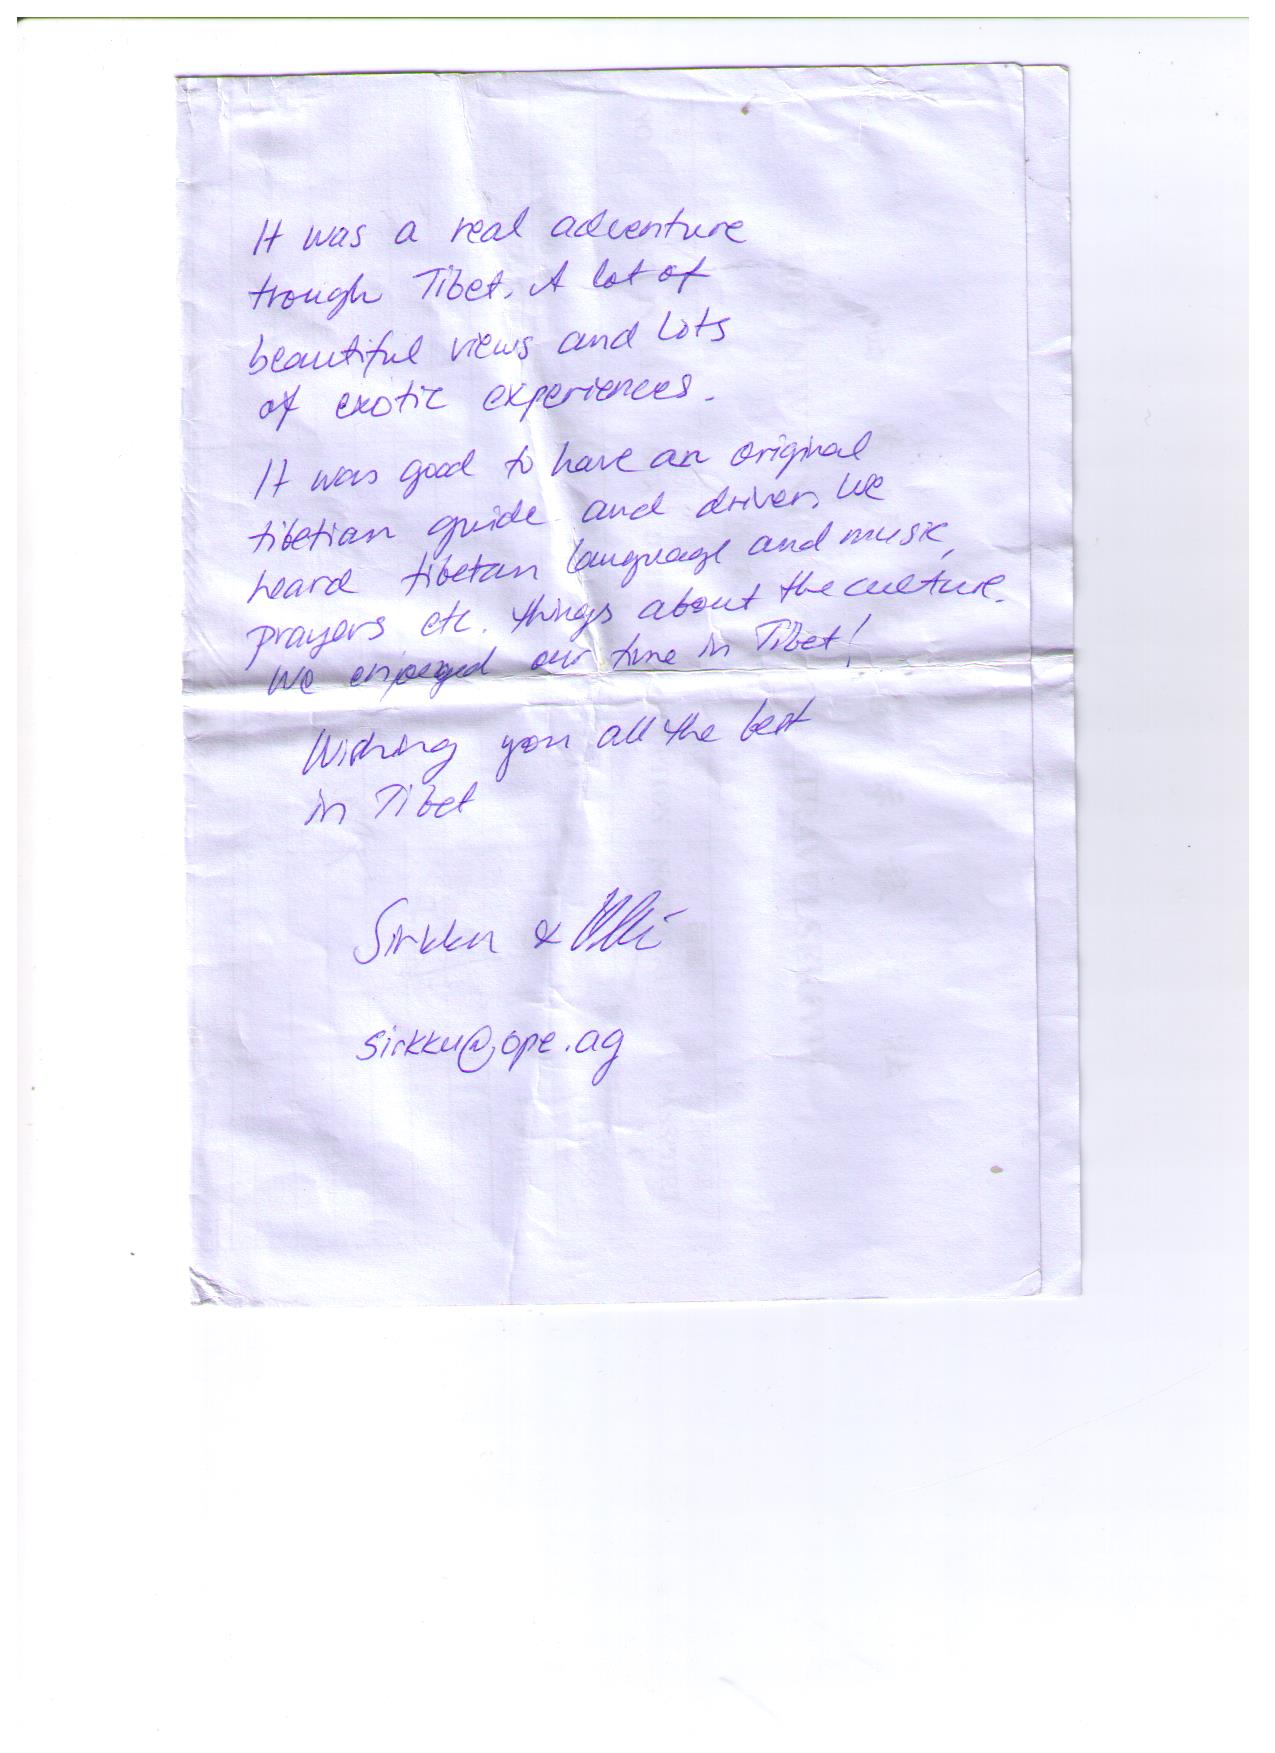 It was a real adventure
trough Tibet. A lot of
beautiful views and lots
of exotic experiences.
It was good to have an original
tibetian guide and driver. We
heard tibetan language and music,
prayers etc. things about the culture.
We enjoyed our time in Tibet!
Wishing you all the best
in Tibet
Sirkku & Olli
sirkku@ope.ag